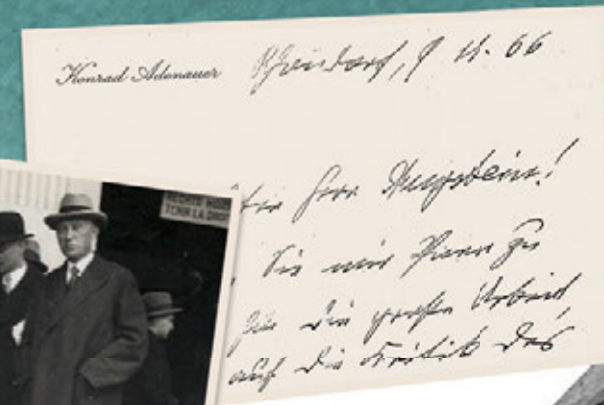 Konrad Adenauer
Rhöndorf, 9 11. 66
ter Herr Augstein!
Sie mir
für die große Arbeit
auf die Kritik des